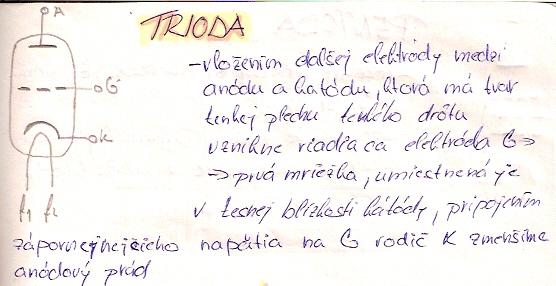 TRIODA
A
G
K
f1 f2
-vložením dalšej elektródy medzi
anódu a katódu, ktorá má tvar
tenkej plechu tenkého drôtu
vznikne riadiaca elektróda G →
→ prvá mriežka, umiestnená je
v tesnej blízkosti kátódy, pripojením
zápornejnejšieho napätia na G rodič K zmenšíme
anódový prúd